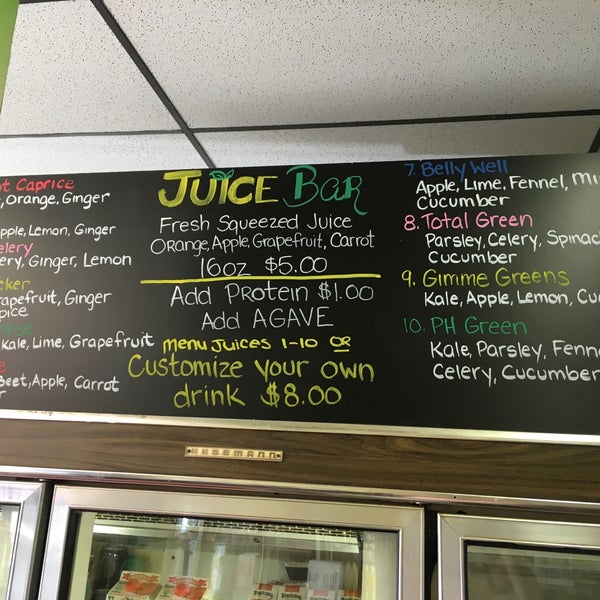 ot Caprice
, Orange, Ginger
pple, Lemon, Ginger
elery
ery, Ginger, Lemon
cker
rapefruit, Ginger
pice
nse
Kale, Lime, Grapefruit
e
Beet, Apple, Carrot
r
JUICE BAR
Fresh Squeezed Juice
Orange, Apple, Grapefruit, Carrot
16oz $5.00
Add Protein $1.00
Add AGAVE
Menu Juices 1-10 OR
Customize your own
drink $8.00
7. Belly Well
Apple, Lime, Fennel, Mi
Cucumber
8. Total Green
Parsley, Celery, Spinac
Cucumber
9. Gimme Greens
Kale, Apple, Lemon, Cu
10. PH Green
Kale, Parsley, Fenn
Celery, Cucumber
HUSSMANN